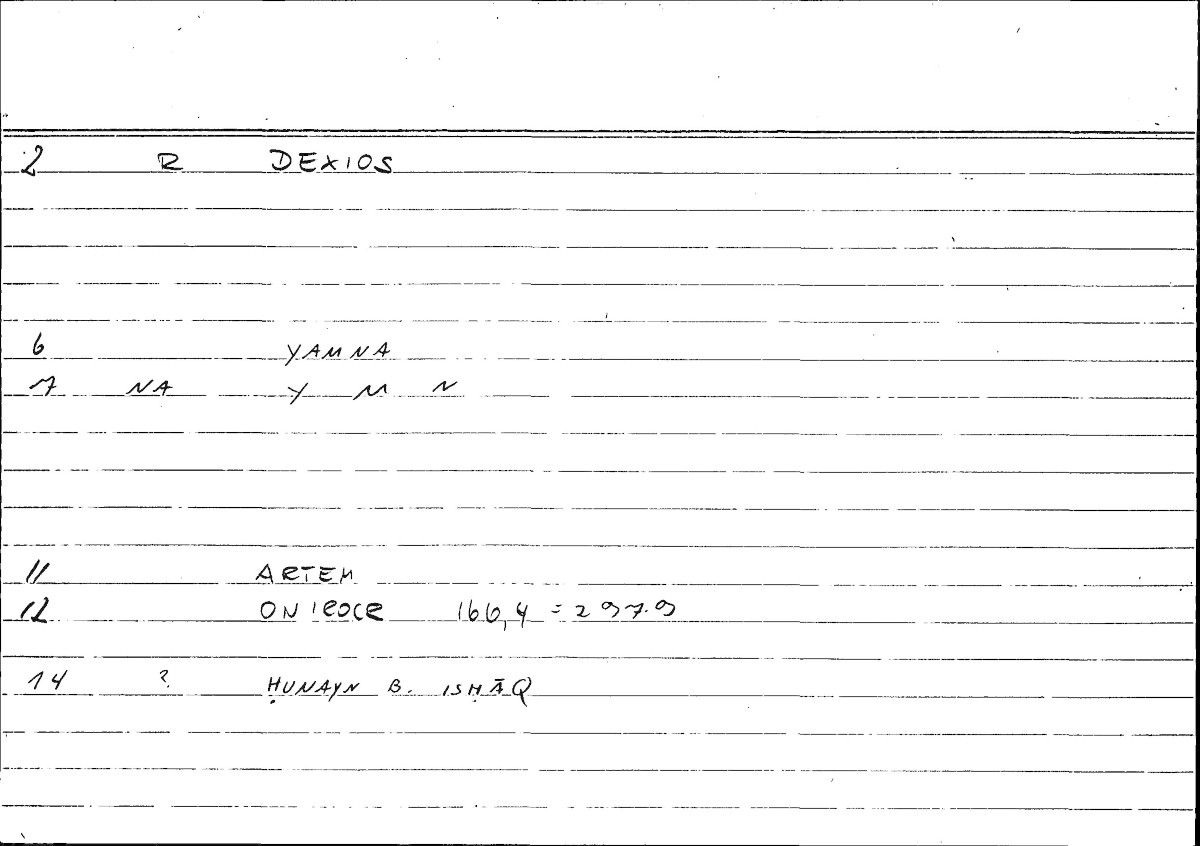 2 R DEXIOS
6 YAMNA
7 NA Y M N
11 ARTEM
12 ONIROCR 166,4 = 297.9
14 ? ḤUNAYN B. ISḤĀQ